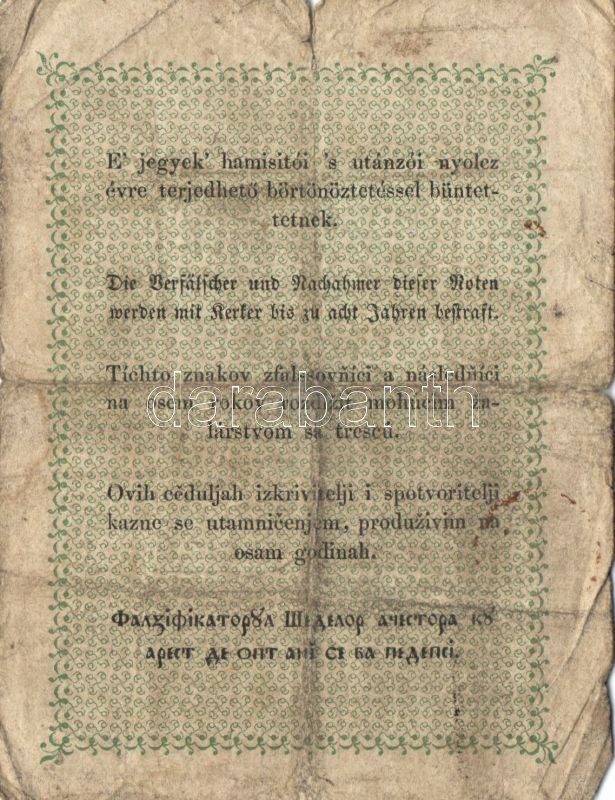 E' jegyek' hamisitói 's utánzói nyolcz
évre terjedhető börtönöztetéssel büntet-
tetnek.
Die Verfälscher und Nachahmer dieser Noten
werden mit Kerker bis zu acht Jahren bestraft.
Tíchto znakov zfalšovňíci a následňíci
na osem rokov mohúcím ža-
lárstvom sa trescú.
darabanth
Ovih cěduljah izkrivitelji i spotvoritelji
kazne se utamničenjem, produživim na
osam godinah.
Фалꙃіфікаторꙋл Шеделор ачестора кꙋ
арест де опт ані се ва педепсі.